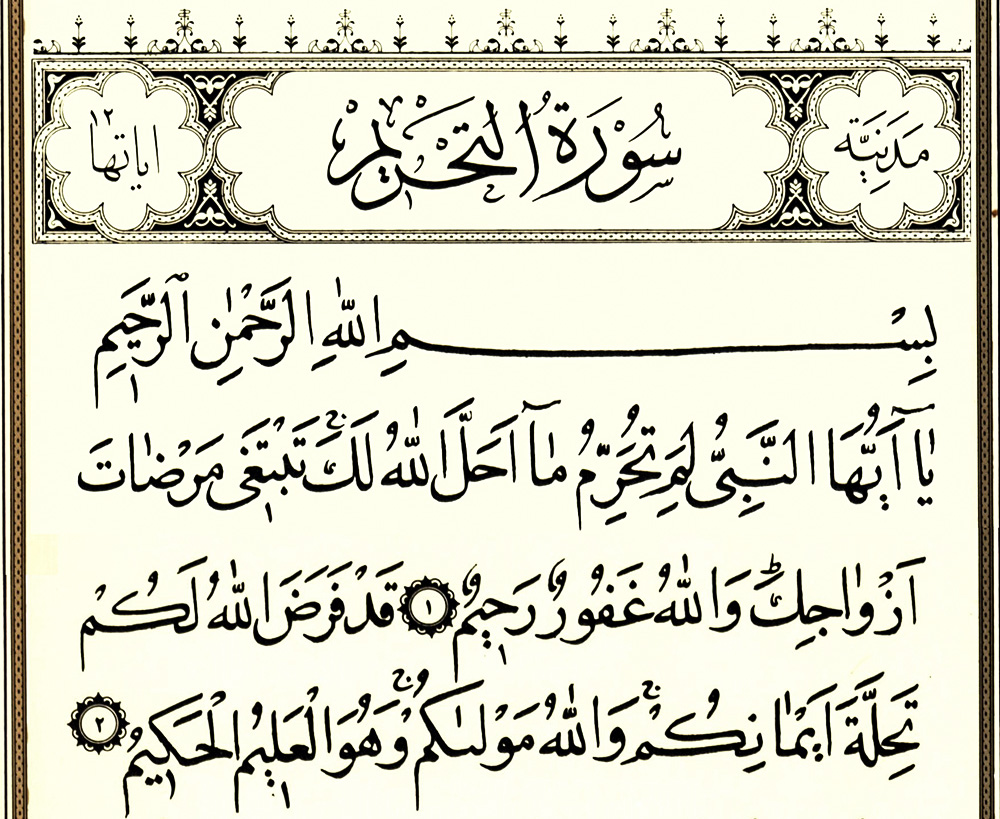 مَدَنِيَّة سُورَةُ التَّحْرِيمِ اياتها ١٢
بِسْمِ اللّٰهِ الرَّحْمٰنِ الرَّحِيمِ
يَٓا اَيُّهَا النَّبِىُّ لِمَ تُحَرِّمُ مَٓا اَحَلَّ اللّٰهُ لَكَۚ تَبْتَغٖى مَرْضَاتَ
اَزْوَاجِكَؕ وَاللّٰهُ غَفُورٌ رَحِيمٌ ١ قَدْ فَرَضَ اللّٰهُ لَكُمْ
تَحِلَّةَ اَيْمَانِكُمْۚ وَاللّٰهُ مَوْلٰيكُمْۚ وَهُوَ الْعَلِيمُ الْحَكِيمُ ٢